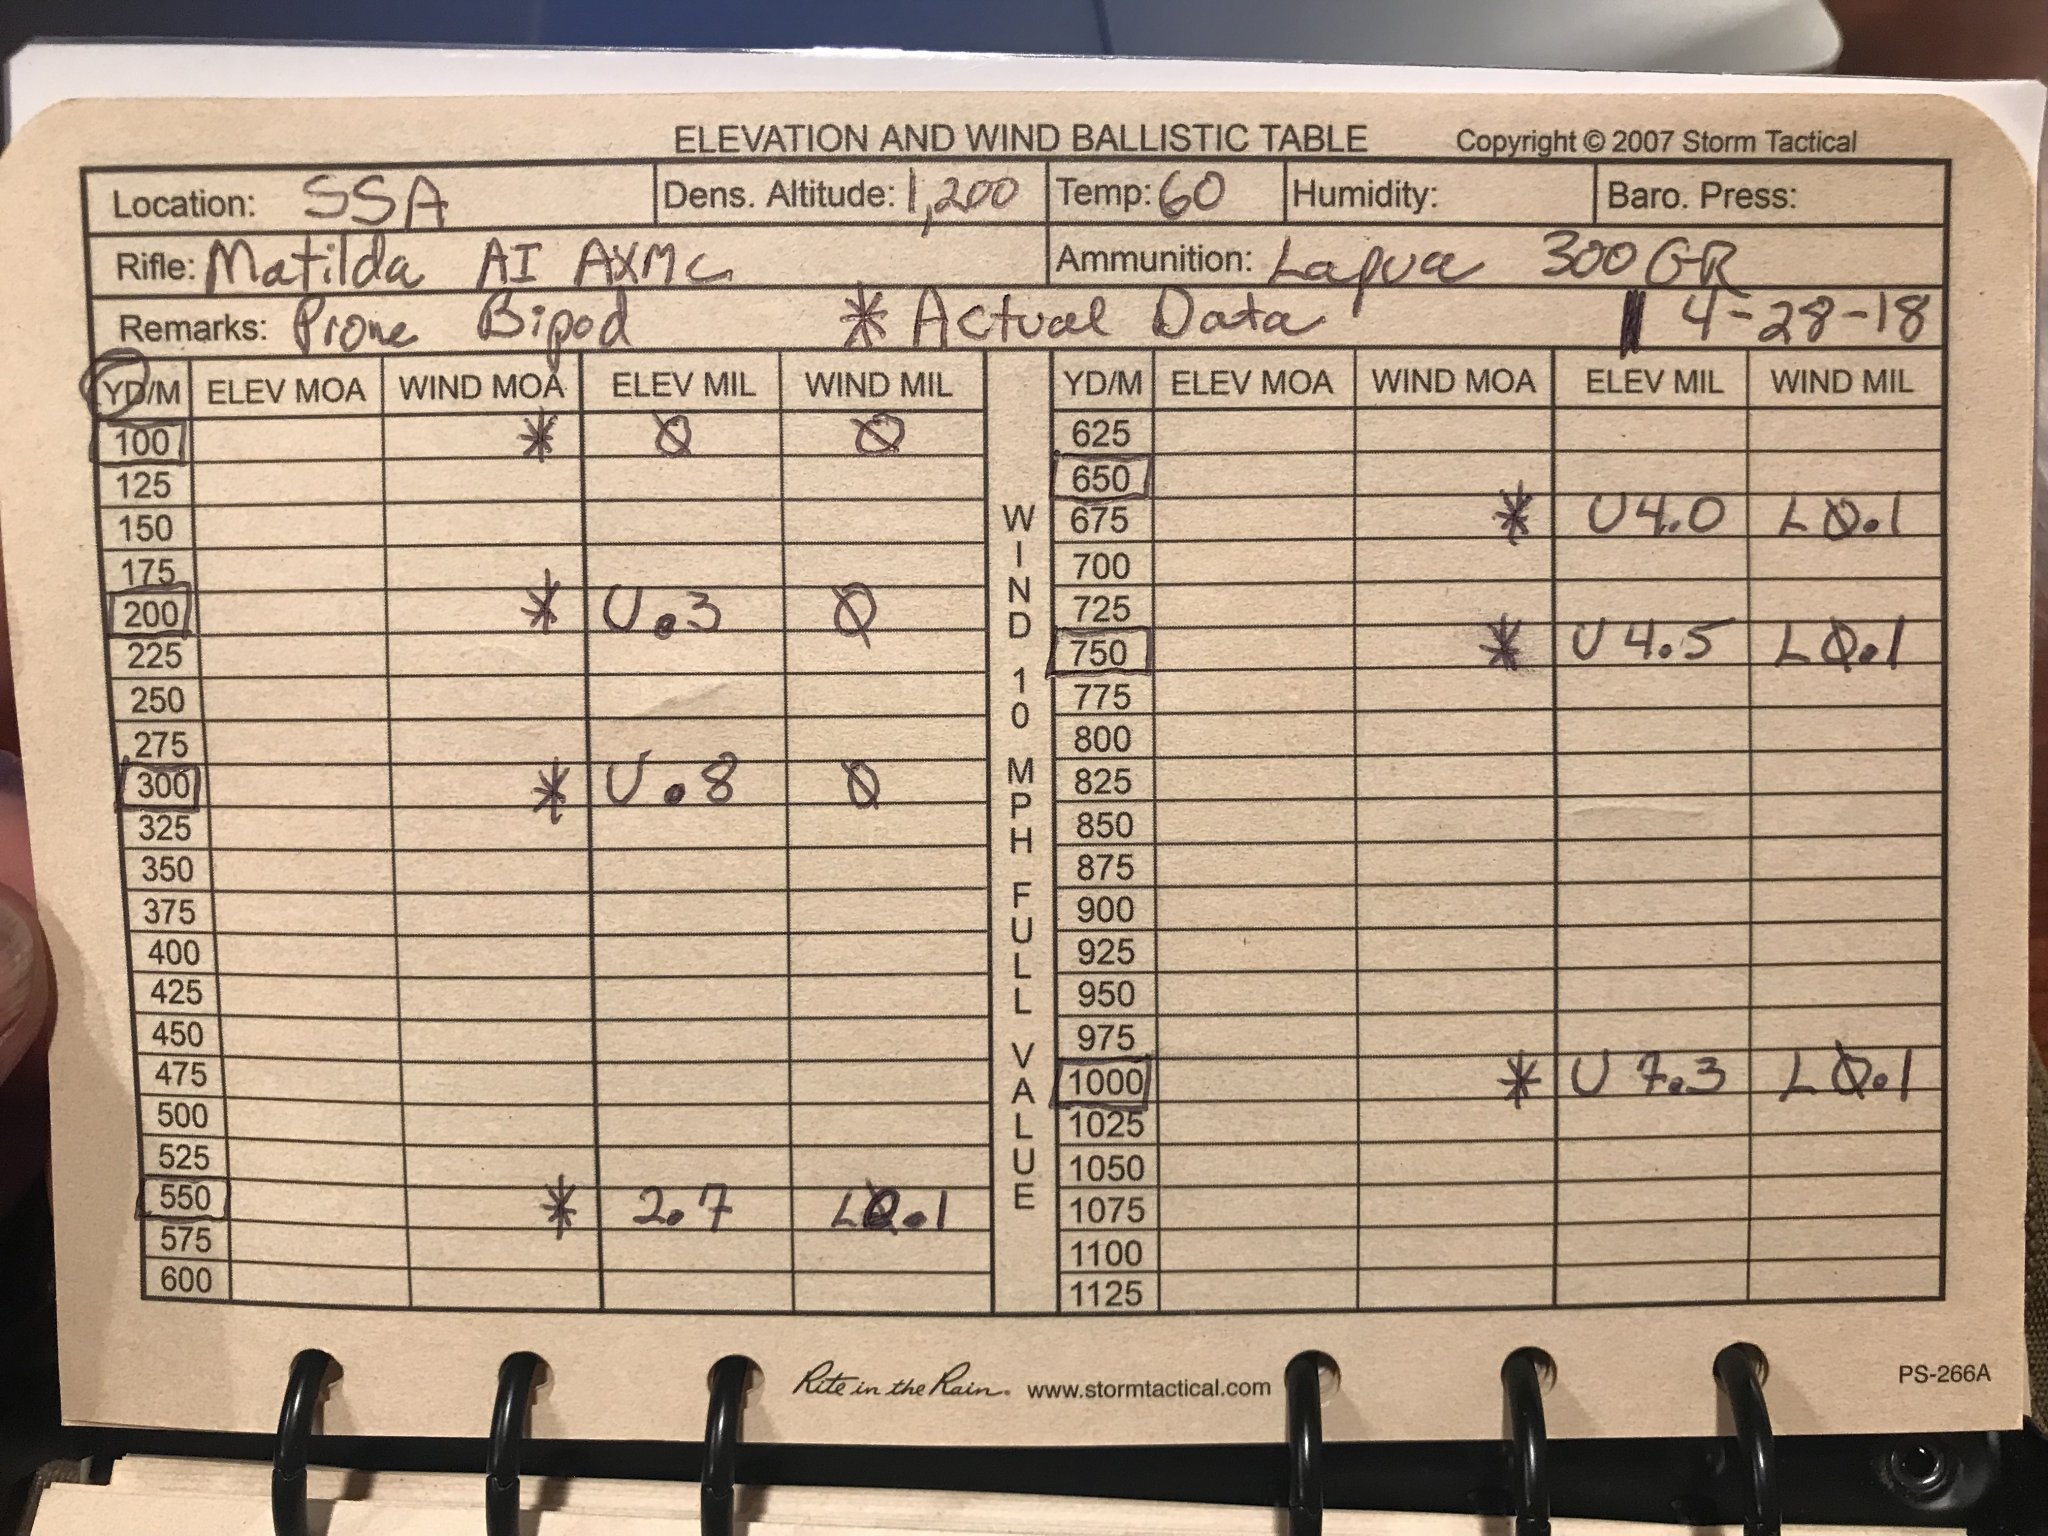 ELEVATION AND WIND BALLISTIC TABLE Copyright © 2007 Storm Tactical
Location: SSA Dens. Altitude: 1,200 Temp: 60 Humidity: Baro. Press:
Rifle: Matilda AI AXMC Ammunition: Lapua 300 GR
Remarks: Prone Bipod * Actual Data 4-28-18
YD/M ELEV MOA WIND MOA ELEV MIL WIND MIL
100 * Ø Ø
125
150
175
200 * U .3 Ø
225
250
275
300 * U .8 Ø
325
350
375
400
425
450
475
500
525
550 * 2.7 LØ.1
575
600
WIND 10 MPH FULL VALUE
YD/M ELEV MOA WIND MOA ELEV MIL WIND MIL
625
650
675 * U 4.0 LØ.1
700
725
750 * U 4.5 LØ.1
775
800
825
850
875
900
925
950
975
1000 * U 7.3 LØ.1
1025
1050
1075
1100
1125
Rite in the Rain. www.stormtactical.com PS-266A